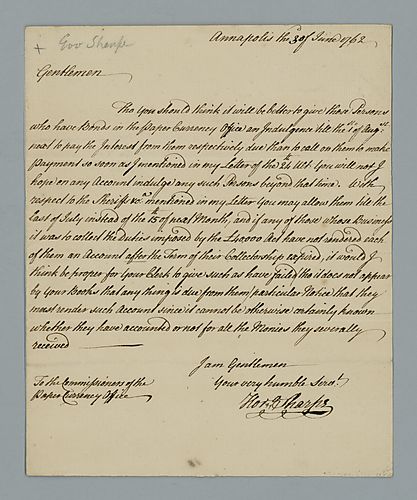 + Gov Sharpe
Annapolis the 30 of June 1762
Gentlemen
Tho you should think it will be better to give those Persons
who have Bonds in the Paper Currency Office an Indulgence till the 1st of Augst
next to pay the Interest from them respectively due than to call on them to make
Payment so soon as I mentioned in my Letter of the 24th Ult. You will not I
hope on any Account indulge any such Persons beyond that time. With
respect to the Sheriffs &ca mentioned in my Letter You may allow them till the
last of July instead of the of next Month, and if any of those whose Business
it was to collect the Duties imposed by the £40000 Act have not rendered each
of them an Account after the Term of their Collectorship expired, it would I
think be proper for Your Clerk to give such as have failed tho it does not appear
by Your Books that any thing is due from them particular Notice that they
must render such Account since it cannot be otherwise certainly known
whether they have accounted or not for all the Monies they severally
received
I am Gentlemen
Your very humble Servt.
Horo Sharpe
To the Commissioners of the
Paper Currency Office